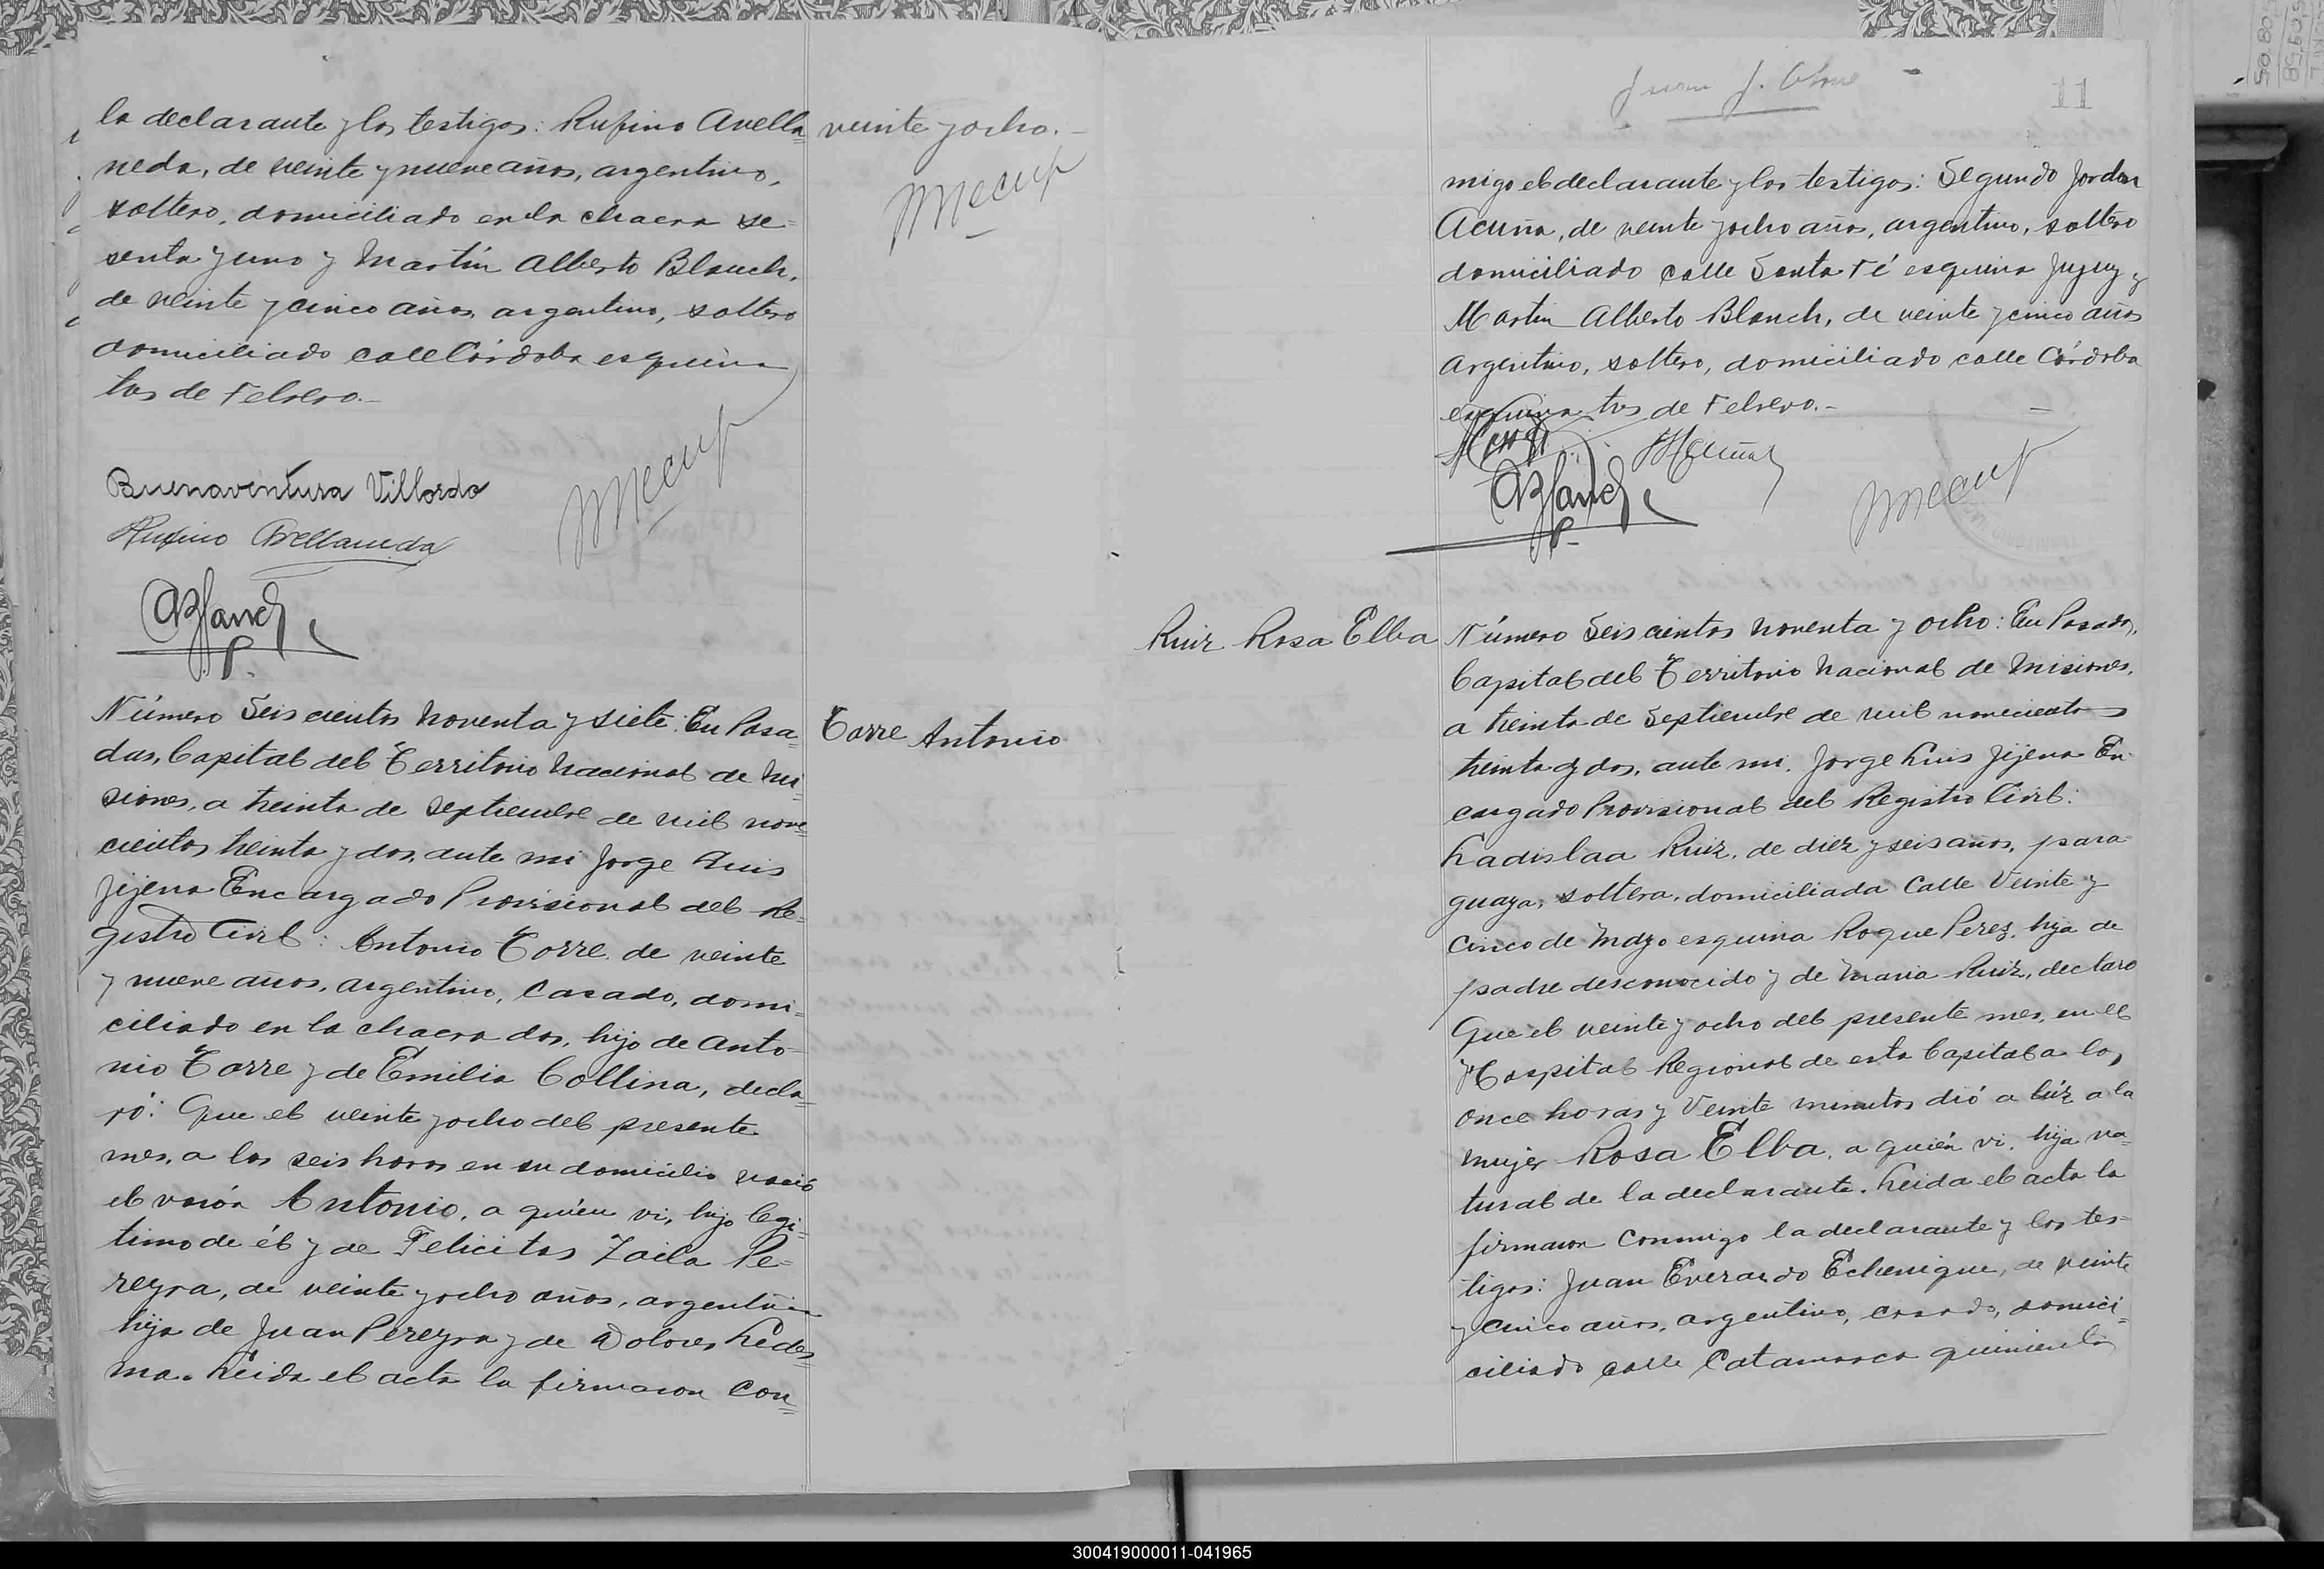 la declarante y los testigos: Rufino Avella=
neda, de veinte y nueve años, argentino,
soltero, domiciliado en la chacra se=
senta y uno y Martín Alberto Blanch,
de veinte y cinco años, argentino, soltero
domiciliado calle Córdoba esquina
tres de Febrero.-
veinte y ocho.-
Buenaventura Villordo
Rufino Avellaneda
ABlanch
Número Seiscientos Noventa y siete: En Posa=
das, Capital del Territorio Nacional de Mi=
siones, a treinta de Septiembre de mil nove=
cientos treinta y dos, ante mi Jorge Luis
Jijena Encargado Provisional del Re=
gistro Civil: Antonio Torre, de veinte
y nueve años, argentino, Casado, domi=
ciliado en la chacra dos, hijo de Anto=
nio Torre y de Emilia Collina, decla=
ró: Que el veinte y ocho del presente
mes, a las seis horas en su domicilio nació
el varón Antonio, a quién vi, hijo legi=
timo de él y de Felicitas Zoila Pe=
reyra, de veinte y ocho años, argentina
hija de Juan Pereyra y de Dolores Ledes=
ma. Leida el acta la firmaron Con=
Torre Antonio
11
migo el declarante y los testigos: Segundo Jordan
Acuña, de veinte y ocho años, argentino, soltero
domiciliado calle Santa Fé esquina Jujuy y
Martin Alberto Blanch, de veinte y cinco años
Argentino, soltero, domiciliado calle Córdoba
esquina tres de Febrero.-
ABlanch
Ruiz Rosa Elba
Número Seiscientos Noventa y ocho: En Posadas,
Capital del Territorio Nacional de Misiones,
a treinta de Septiembre de mil novecientos
treinta y dos, ante mi, Jorge Luis Jijena En
cargado Provisional del Registro Civil:
Ladislaa Ruiz, de diez y seis años, para
guaya, soltera, domiciliada Calle Veinte y
Cinco de Mayo esquina Roque Perez, hija de
padre desconocido y de Maria Ruiz, declaro
Que el veinte y ocho del presente mes, en el
Hospital Regional de esta Capital a las
once horas y Veinte minutos dió a lúz a la
mujer Rosa Elba, a quién vi, hija na=
tural de la declarante. Leida el acta la
firmaron Conmigo la declarante y los tes=
tigos: Juan Everardo Echenique, de veinte
y cinco años, argentino, casado, domici=
ciliado calle Catamarca quinientos
300419000011-041965